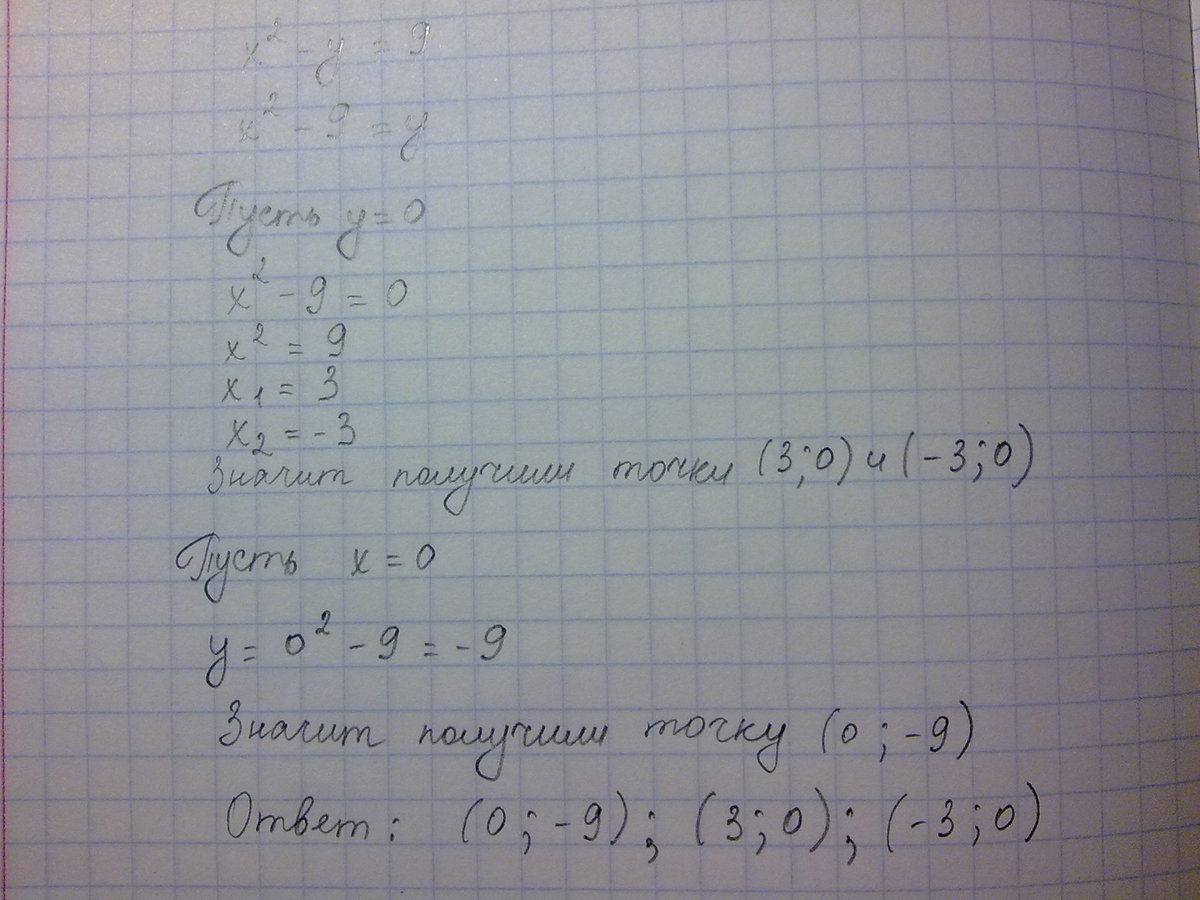 x² - y = 9
x² - 9 = y
Пусть y = 0
x² - 9 = 0
x² = 9
x₁ = 3
x₂ = -3
Значит получили точки (3;0) и (-3;0)
Пусть x = 0
y = 0² - 9 = -9
Значит получили точку (0 ; -9)
Ответ: (0 ; -9) ; (3 ; 0) ; (-3 ; 0)